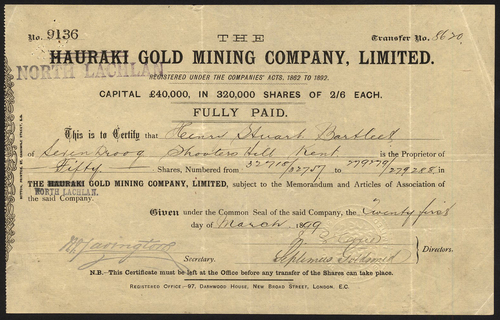 THE
No. 9136 Transfer No. 8620
HAURAKI GOLD MINING COMPANY, LIMITED.
NORTH LACHLAN
REGISTERED UNDER THE COMPANIES' ACTS, 1862 TO 1892.
CAPITAL £40,000, IN 320,000 SHARES OF 2/6 EACH.
FULLY PAID.
This is to Certify that Henry Stuart Bartleet
of Severndroog Shooters Hill Kent is the Proprietor of
Fifty Shares, Numbered from 32718/32757 to 279279/279288, in
THE HAURAKI GOLD MINING COMPANY, LIMITED, subject to the Memorandum and Articles of Association of
NORTH LACHLAN.
the said Company.
Given under the Common Seal of the said Company, the Twenty first
day of March 1899
Septimus Goldsmid
Secretary. Directors.
N.B.—This Certificate must be left at the Office before any transfer of the Shares can take place.
REGISTERED OFFICE:—97, DASHWOOD HOUSE, NEW BROAD STREET, LONDON, E.C.